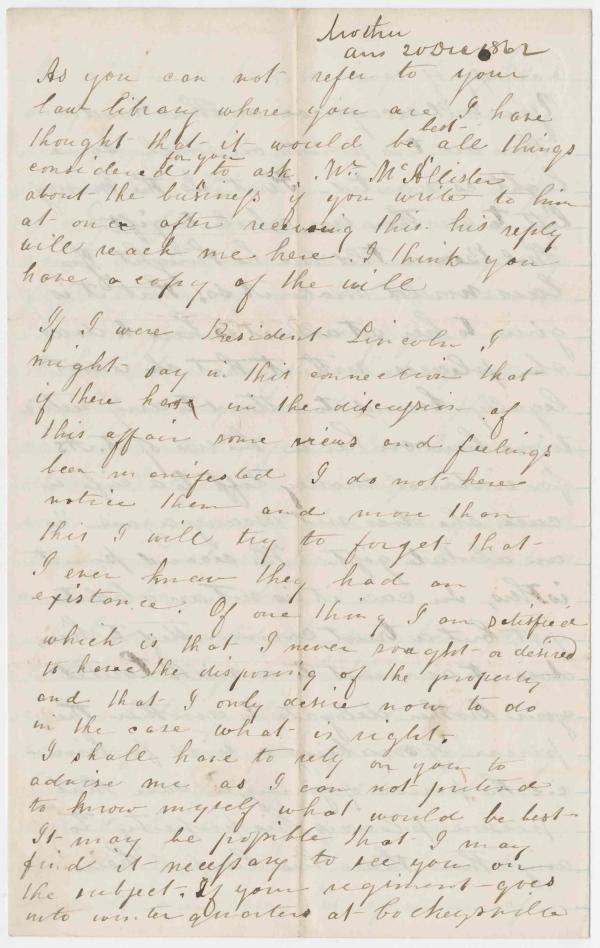 Mother
ans 20 Dec 1862
As you can not refer to your
law library where you are I have
thought that it would be best all things
considered for you to ask Mr. McAllister
about the business if you write to him
at once after receiving this his reply
will reach me here. I think you
have a copy of the will
If I were President Lincoln I
might say in this connection that
if there have in the discussion of
this affair some views and feelings
been manifested I do not here
notice them and more than
this I will try to forget that
I ever knew they had an
existance. Of one thing I am satisfied
which is that I never sought or desired
to have the disposing of the property
and that I only desire now to do
in the case what is right.
I shall have to rely on you to
advise me as I can not pretend
to know myself what would be best
It may be possible that I may
find it necessary to see you on
the subject. If your regiment goes
into winter quarters at Cockeysville